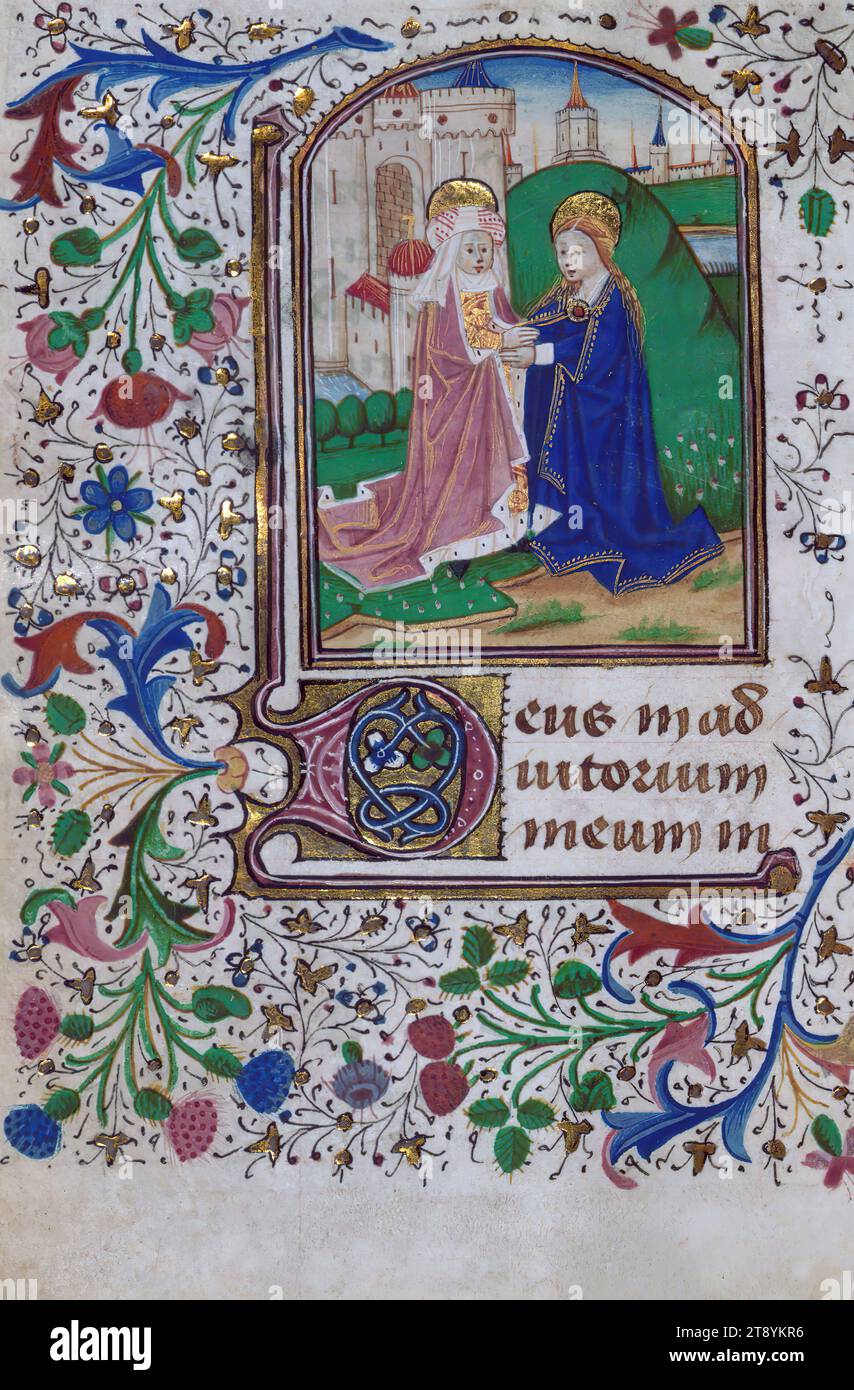 Deus in ad
iutorium
meum in
alamy
Image ID: 2T8YKR6
www.alamy.com